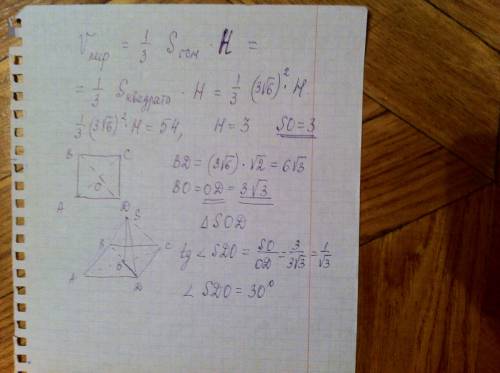 Vпир = 1/3 Sосн · H =
= 1/3 Sквадрата · H = 1/3 (3√6)² · H
1/3 (3√6)² · H = 54, H = 3 SO = 3
B C
A D
O
BD = (3√6) · √2 = 6√3
BO = OD = 3√3
△SOD
tg ∠ SDO = SO/OD = 3/3√3 = 1/√3
∠ SDO = 30°
S
B C
O
A D